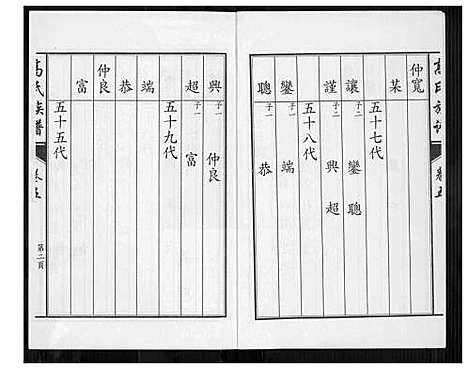 高氏族谱
卷五
仲寬
某
五十七代
讓 子二 鑾 聰
謹 子二 興 超
五十八代
鑾 子一 端
聰 子一 恭
興 子一 仲良
超 子一 富
五十九代
端
恭
仲良
富
五十五代
高氏族譜
卷五
第二頁